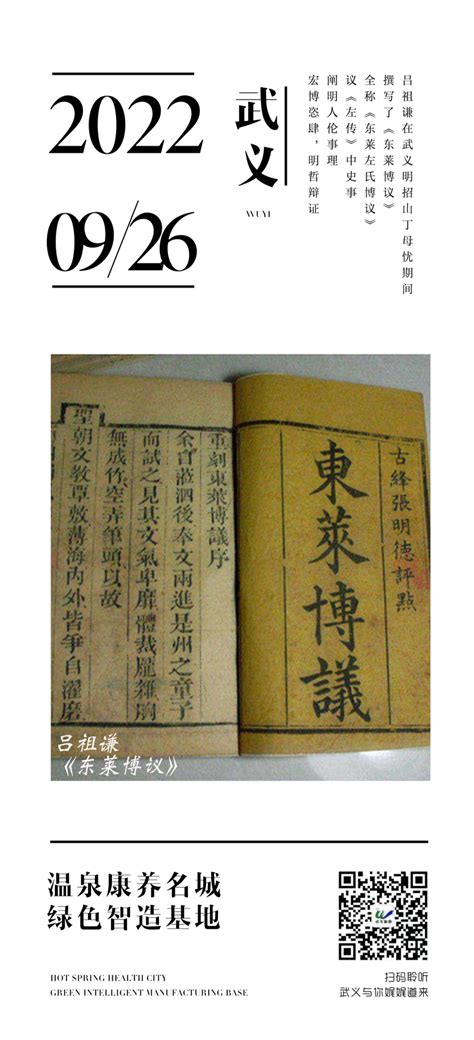 2022
09/26
武义
WUYI
吕祖谦在武义明招山丁母忧期间
撰写了《东莱博议》
全称《东莱左氏博议》
议《左传》中史事
阐明人伦事理
宏博恣肆，明哲辩证
古絳張明德評點
東萊博議
重刻東萊博議序
余嘗涖泗後奉文兩進是州之童子
而試之見其文氣卑靡體裁龐雜胸
無成竹空弄筆頭以故
聖朝文教覃敷薄海內外皆爭自濯磨
吕祖谦
《东莱博议》
温泉康养名城
绿色智造基地
HOT SPRING HEALTH CITY
GREEN INTELLIGENT MANUFACTURING BASE
扫码聆听
武义与你娓娓道来